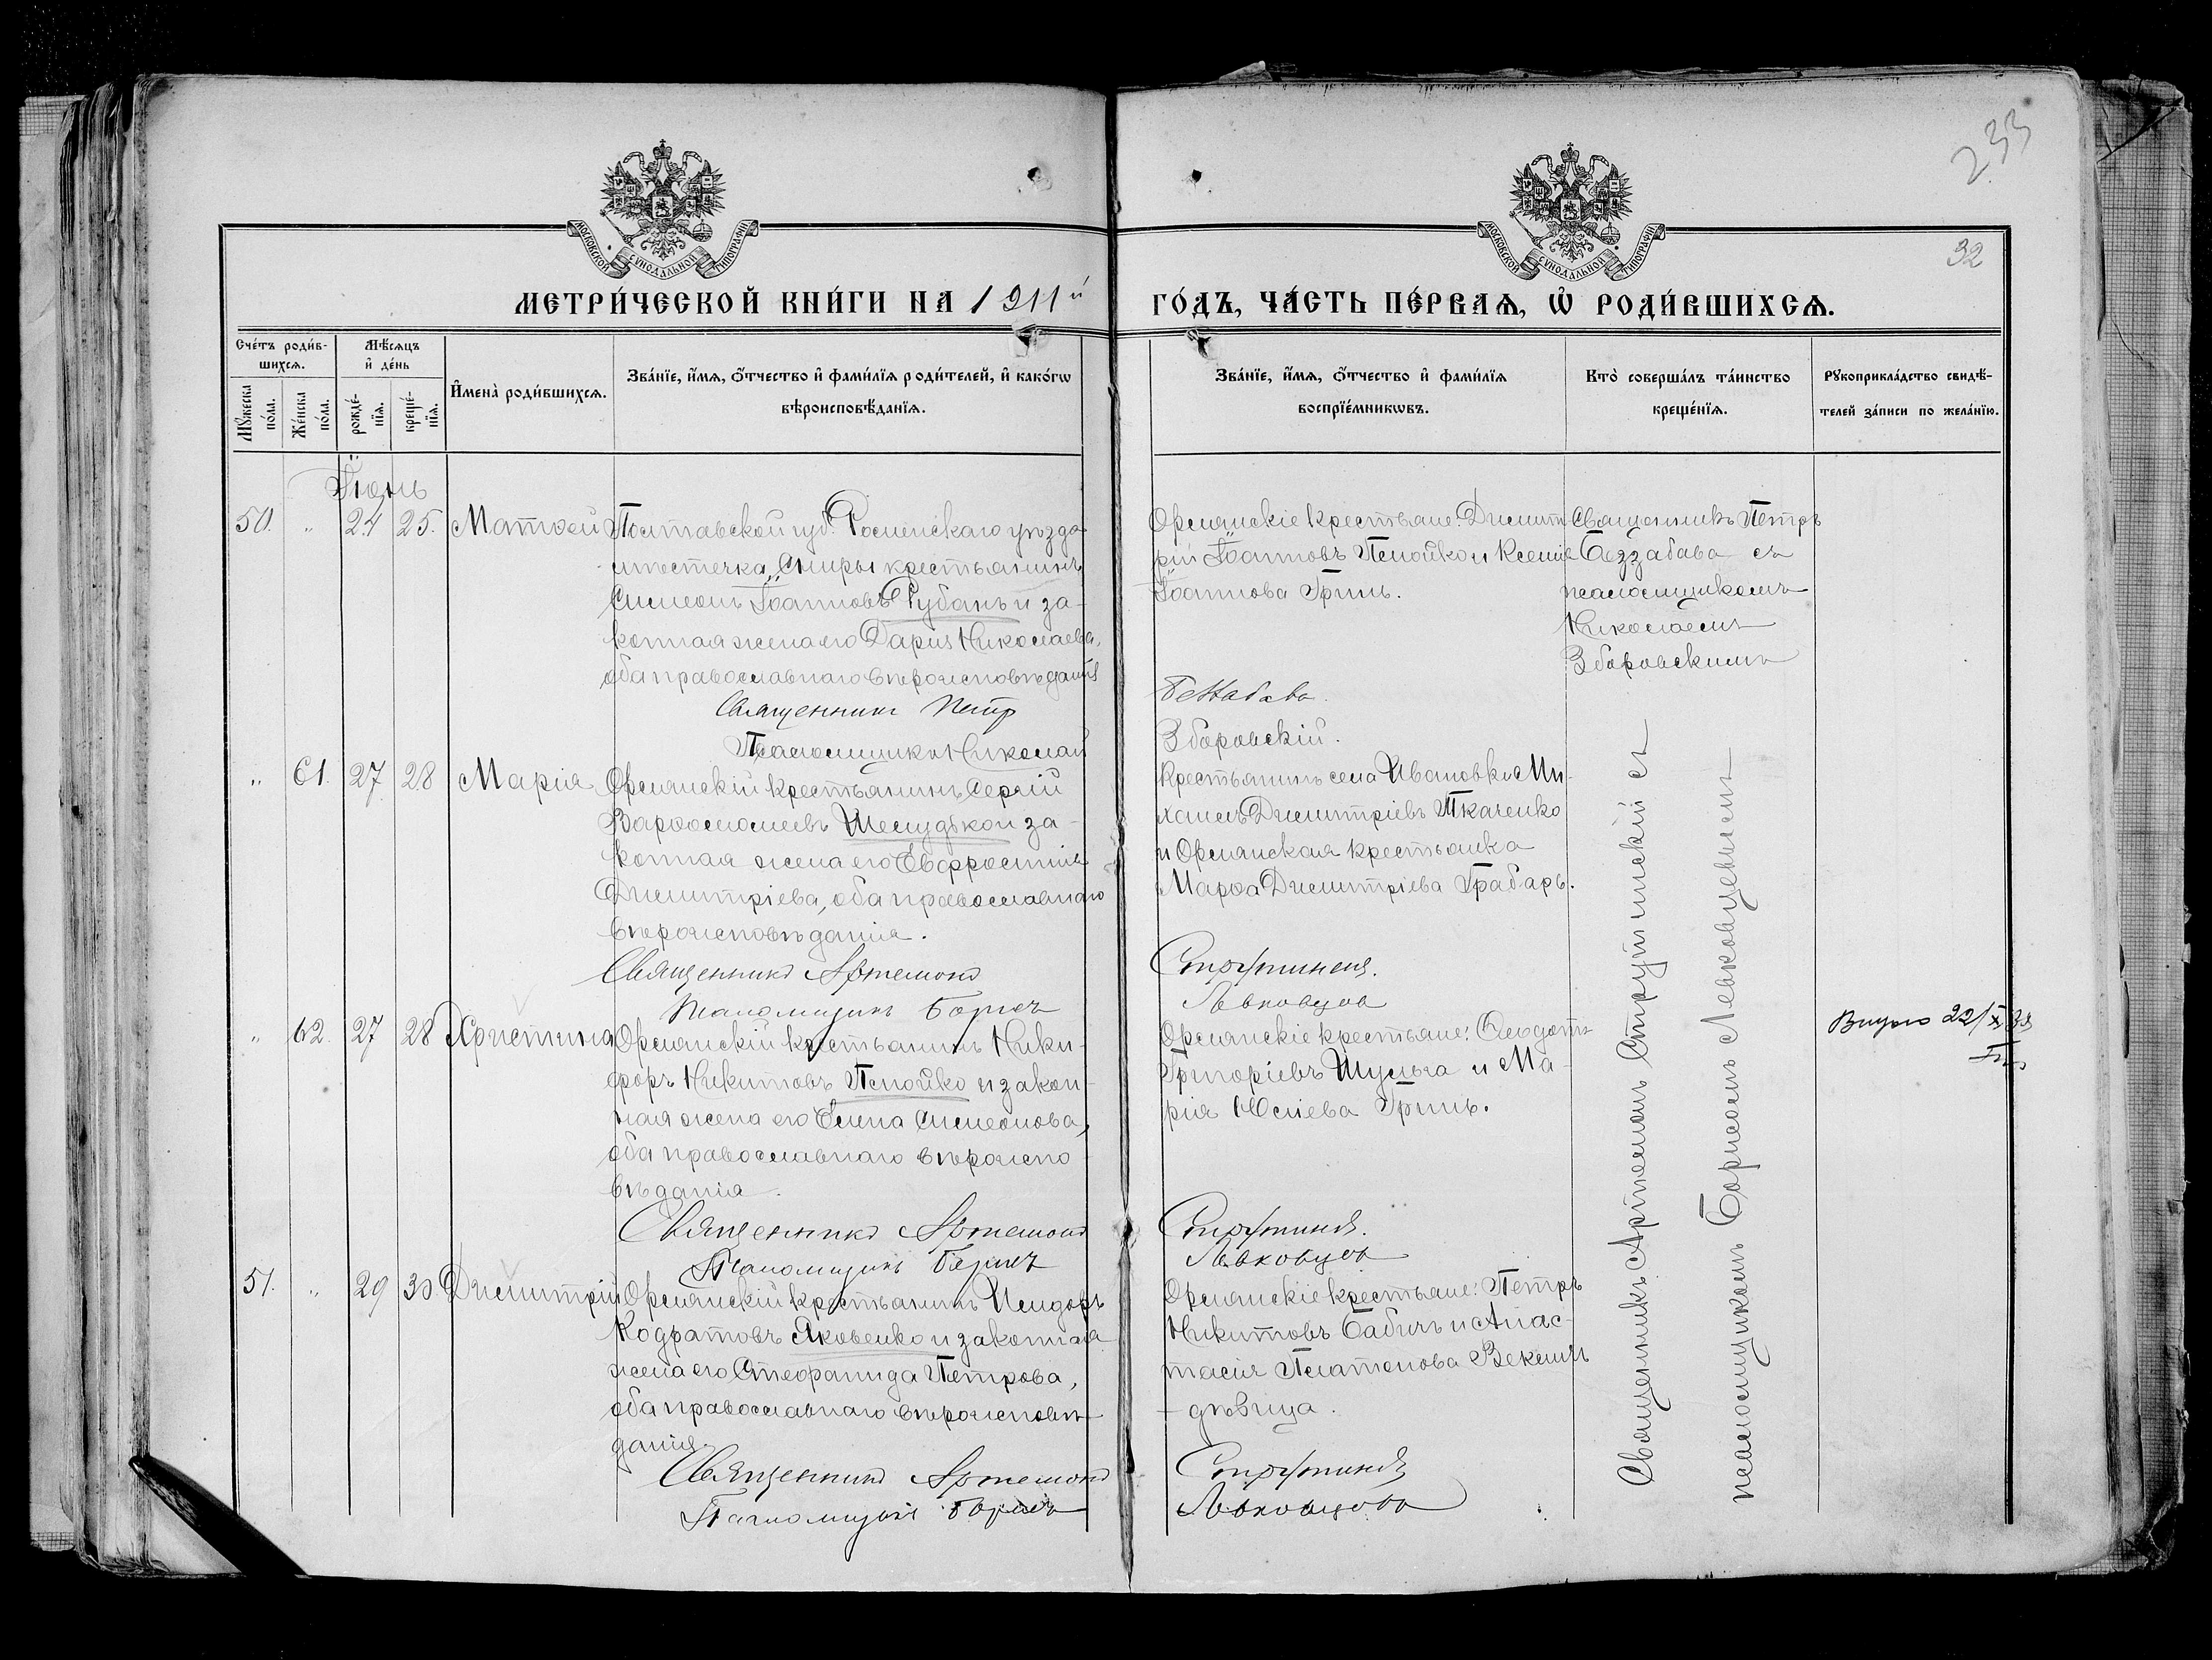 233
32
МОСКОВСКОЙ СѴНОДАЛЬНОЙ ТИПОГРАФІИ
МОСКОВСКОЙ СѴНОДАЛЬНОЙ ТИПОГРАФІИ
МЕТРИ́ЧЕСКОЙ КНИ́ГИ НА 1911й ГО́ДЪ, ЧА́СТЬ ПЕ́РВАѦ, Ѡ҆ РОДИ́ВШИХСѦ.
Сче́тъ роди́в-
шихсѧ.
Мꙋжеска по́ла.
Же́нска по́ла.
Мѣ́сѧцъ
и҆ де́нь
рожде́-
нїѧ.
креще́-
нїѧ.
И҆мена̀ роди́вшихсѧ.
Зва́нїе, и҆́мѧ, ѻ҆́тчество и҆ фами́лїѧ роди́телей, и҆ како́гѡ
вѣроисповѣ́данїѧ.
Зва́нїе, и҆́мѧ, ѻ҆́тчество и҆ фами́лїѧ
воспрїе́мникѡвъ.
Кто̀ соверша́лъ та́инство
креще́нїѧ.
Рꙋкоприкла́дство свидѣ́-
телей за́писи по жела́нїю.
Іюнь
50. „ 24 25. Матѳей
Полтавской губ. Роменскаго уѣзда
мѣстечка „Смѣры крестьянинъ
Симеонъ Іоанновъ Рубанъ и за-
конная жена его Дарія Николаева,
оба православнаго вѣроисповѣданія
Священникъ Петр
Псаломщикъ Николай
Орлянскіе крестьяне: Димит-
рій Іоанновъ Пслойко и Ксенія
Іоаннова Гринь.
Беззабава.
Зборовскій.
Священникъ Петръ
Беззабава съ
псаломщикомъ
Николаемъ
Зборовскимъ
„ 61. 27 28 Марія
Орлянскій крестьянинъ Сергій
Варѳоломеевъ Шелудько и за-
конная жена его Евфросинія
Димитріева, оба православнаго
вѣроисповѣданія.
Священникъ Артемонъ
Псаломщикъ Борисъ
Крестьянинъ села Ивановки Ми-
хаилъ Димитріевъ Ткаченко
и Орлянская крестьянка
Марѳа Димитріева Грабаръ.
Струтинскій.
Левковцовъ
„ 62. 27 28 Христина
Орлянскій крестьянинъ Ники-
форъ Никитовъ Пслойко и закон-
ная жена его Елена Симеонова,
оба православнаго вѣроиспо-
вѣданія.
Священникъ Артемонъ
Псаломщикъ Борисъ
Орлянскіе крестьяне: Ѳеодотъ
Григоріевъ Шульга и Ма-
рія Юліева Гринь.
Струтинскій.
Левковцовъ
51. „ 29 30 Димитрій
Орлянскій крестьянинъ Исидоръ
Кодратовъ Яковенко и законная
жена его Стефанида Петрова,
оба православнаго вѣроисповѣ-
данія.
Священникъ Артемонъ
Псаломщикъ Борисъ
Орлянскіе крестьяне: Петръ
Никитовъ Бабичъ и Анас-
тасія Платонова Векличъ
дѣвица.
Струтинскій
Левковцовъ
Священникъ Артемонъ Струтинскій съ
псаломщикомъ Борисомъ Левковцевымъ
22/X